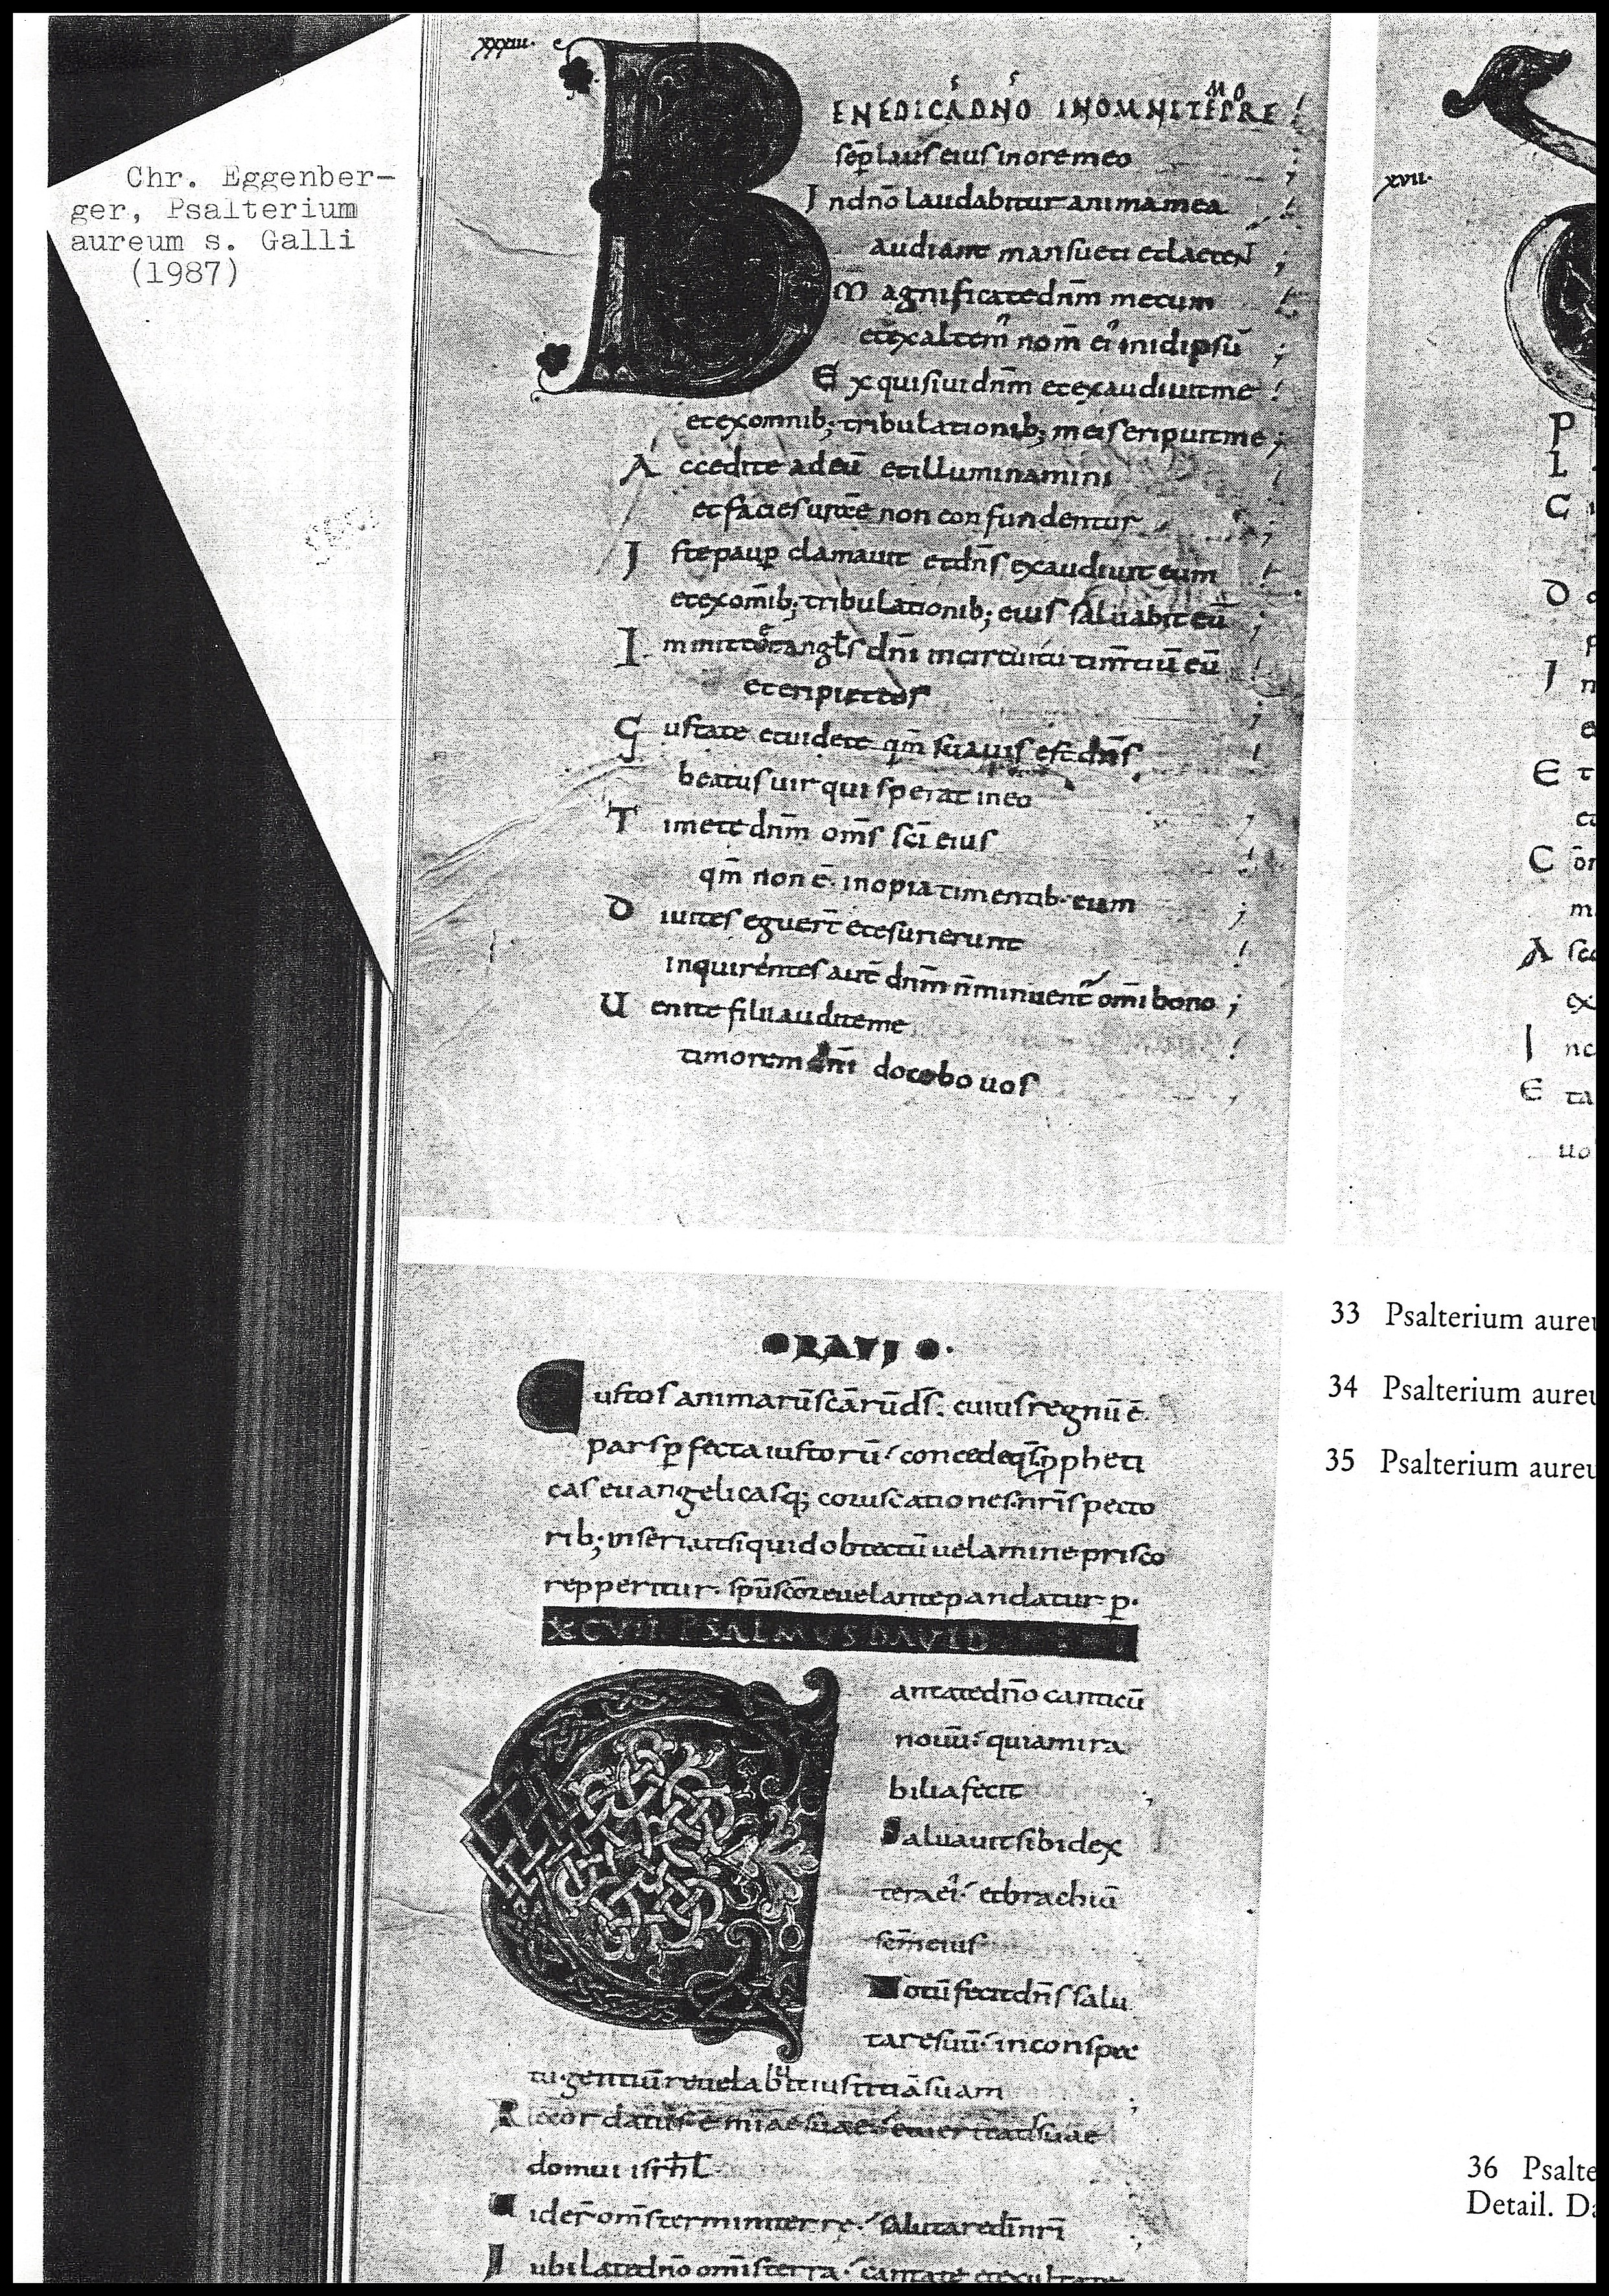 Chr. Eggenber-
ger, Psalterium
aureum s. Galli
(1987)
xxxiii·
BENEDICÁ DN̄O INOMNI TĒPRE
sēp laus eius inore meo
Indn̄o laudabitur anima mea
audiant mansueti et laetenT
Magnificate dn̄m mecum
et exaltem nom̄ ei inidipsū
Exquisiui dn̄m et exaudiuit me
et ex omnib; tribulationib; meis eripuit me
Accedite ad eū et illuminamini
et facies urae non confundentur
Iste paup clamauit et dn̄s exaudiuit eum
et ex om̄ib; tribulationib; eius saluabit eū
dn̄i in circuitu eū
et eripiet eos
Gustate et uidete qm̄ suauis est dn̄s
beatus uir qui sperat in eo
Timete dn̄m om̄s sc̄i eius
qm̄ non ē inopia timentib· eum
Diuites eguer̄t et esurierunt
inquirentes aut̄ dn̄m n̄ minuent̄ om̄i bono ;
Uenite filii audite me
timorem dn̄i docebo uos
xvii·
P
L
C
D
I n
E t
C ōr
A sc
ex
I nc
E ta
uo
33 Psalterium aureu
34 Psalterium aureu
35 Psalterium aureu
ORATIO·
Custos animarū sc̄arū ds̄. cuius regnū ē
pars pfecta iustorū concede qs̄ ppheti
cas euangelicasq; coruscationes nr̄is pecto
rib; inseri, ut siquid obtectū uelamine prisco
repperitur· sp̄u sc̄o reuelante pandatur p·
XCVII. PSALMUS DAVID
Cantate dn̄o canticū
nouū quia mira
bilia fecit
Saluauit sibi dex
tera ei et brachiū
sc̄m eius
Notū fecit dn̄s salu
tare suū in conspec
tu gentiū reuelabit iustitiā suam
Recordatus ē mi̅ae suae suae
domui isrh̄l
Uider̄ om̄s termini terre salutare dī nr̄i
Iubilate dn̄o om̄is terra cantate et exultate
36 Psalte
Detail. Da